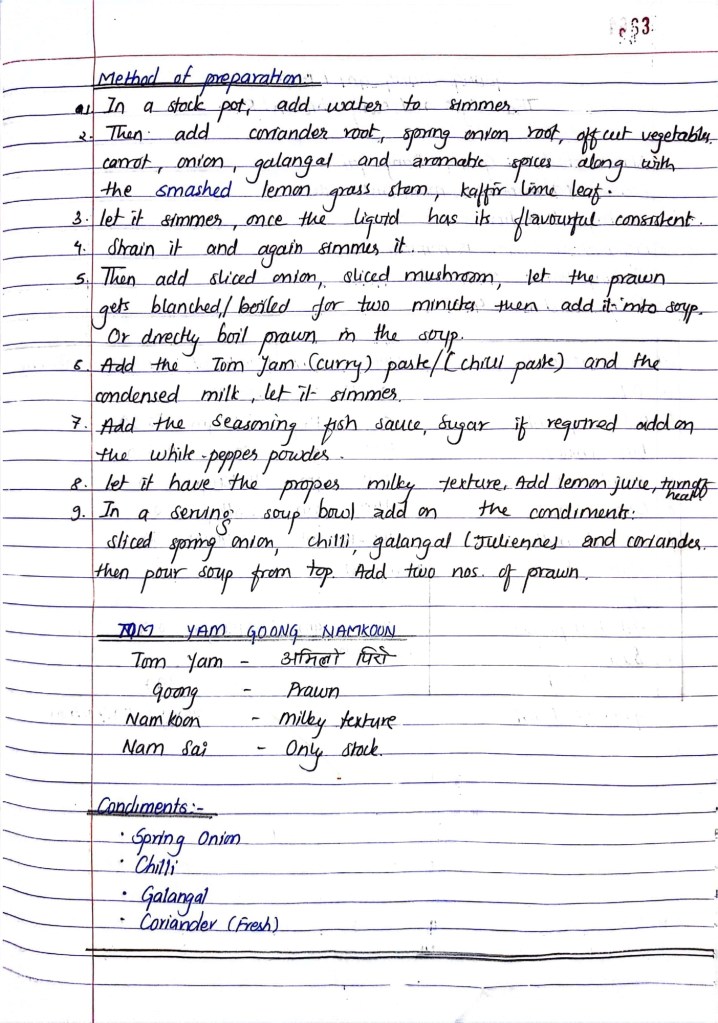 63.
Method of preparation:-
1. In a stock pot, add water to simmer.
2. Then add coriander root, spring onion root, off cut vegetables
carrot, onion, galangal and aromatic spices along with
the smashed lemon grass stem, kaffir lime leaf.
3. let it simmer, once the liquid has its flavourful consistent.
4. Strain it and again simmer it.
5. Then add sliced onion, sliced mushroom, let the prawn
gets blanched/boiled for two minutes then add it into soup.
Or directly boil prawn in the soup.
6. Add the Tom Yam (curry) paste/(chilli paste) and the
condensed milk, let it simmer.
7. Add the seasoning fish sauce, sugar if required add on
the white pepper powder.
8. let it have the proper milky texture. Add lemon juice, turn off
heat
9. In a serving soup bowl add on the condiments:
sliced spring onion, chilli, galangal (Juliennes and coriander.
then pour soup from top. Add two nos. of prawn.
TOM YAM GOONG NAMKOUN
Tom Yam - अमिलो पिरो
Goong - Prawn
Nam koon - milky texture
Nam Sai - Only stock.
Condiments:-
• Spring Onion
• Chilli
• Galangal
• Coriander (Fresh)